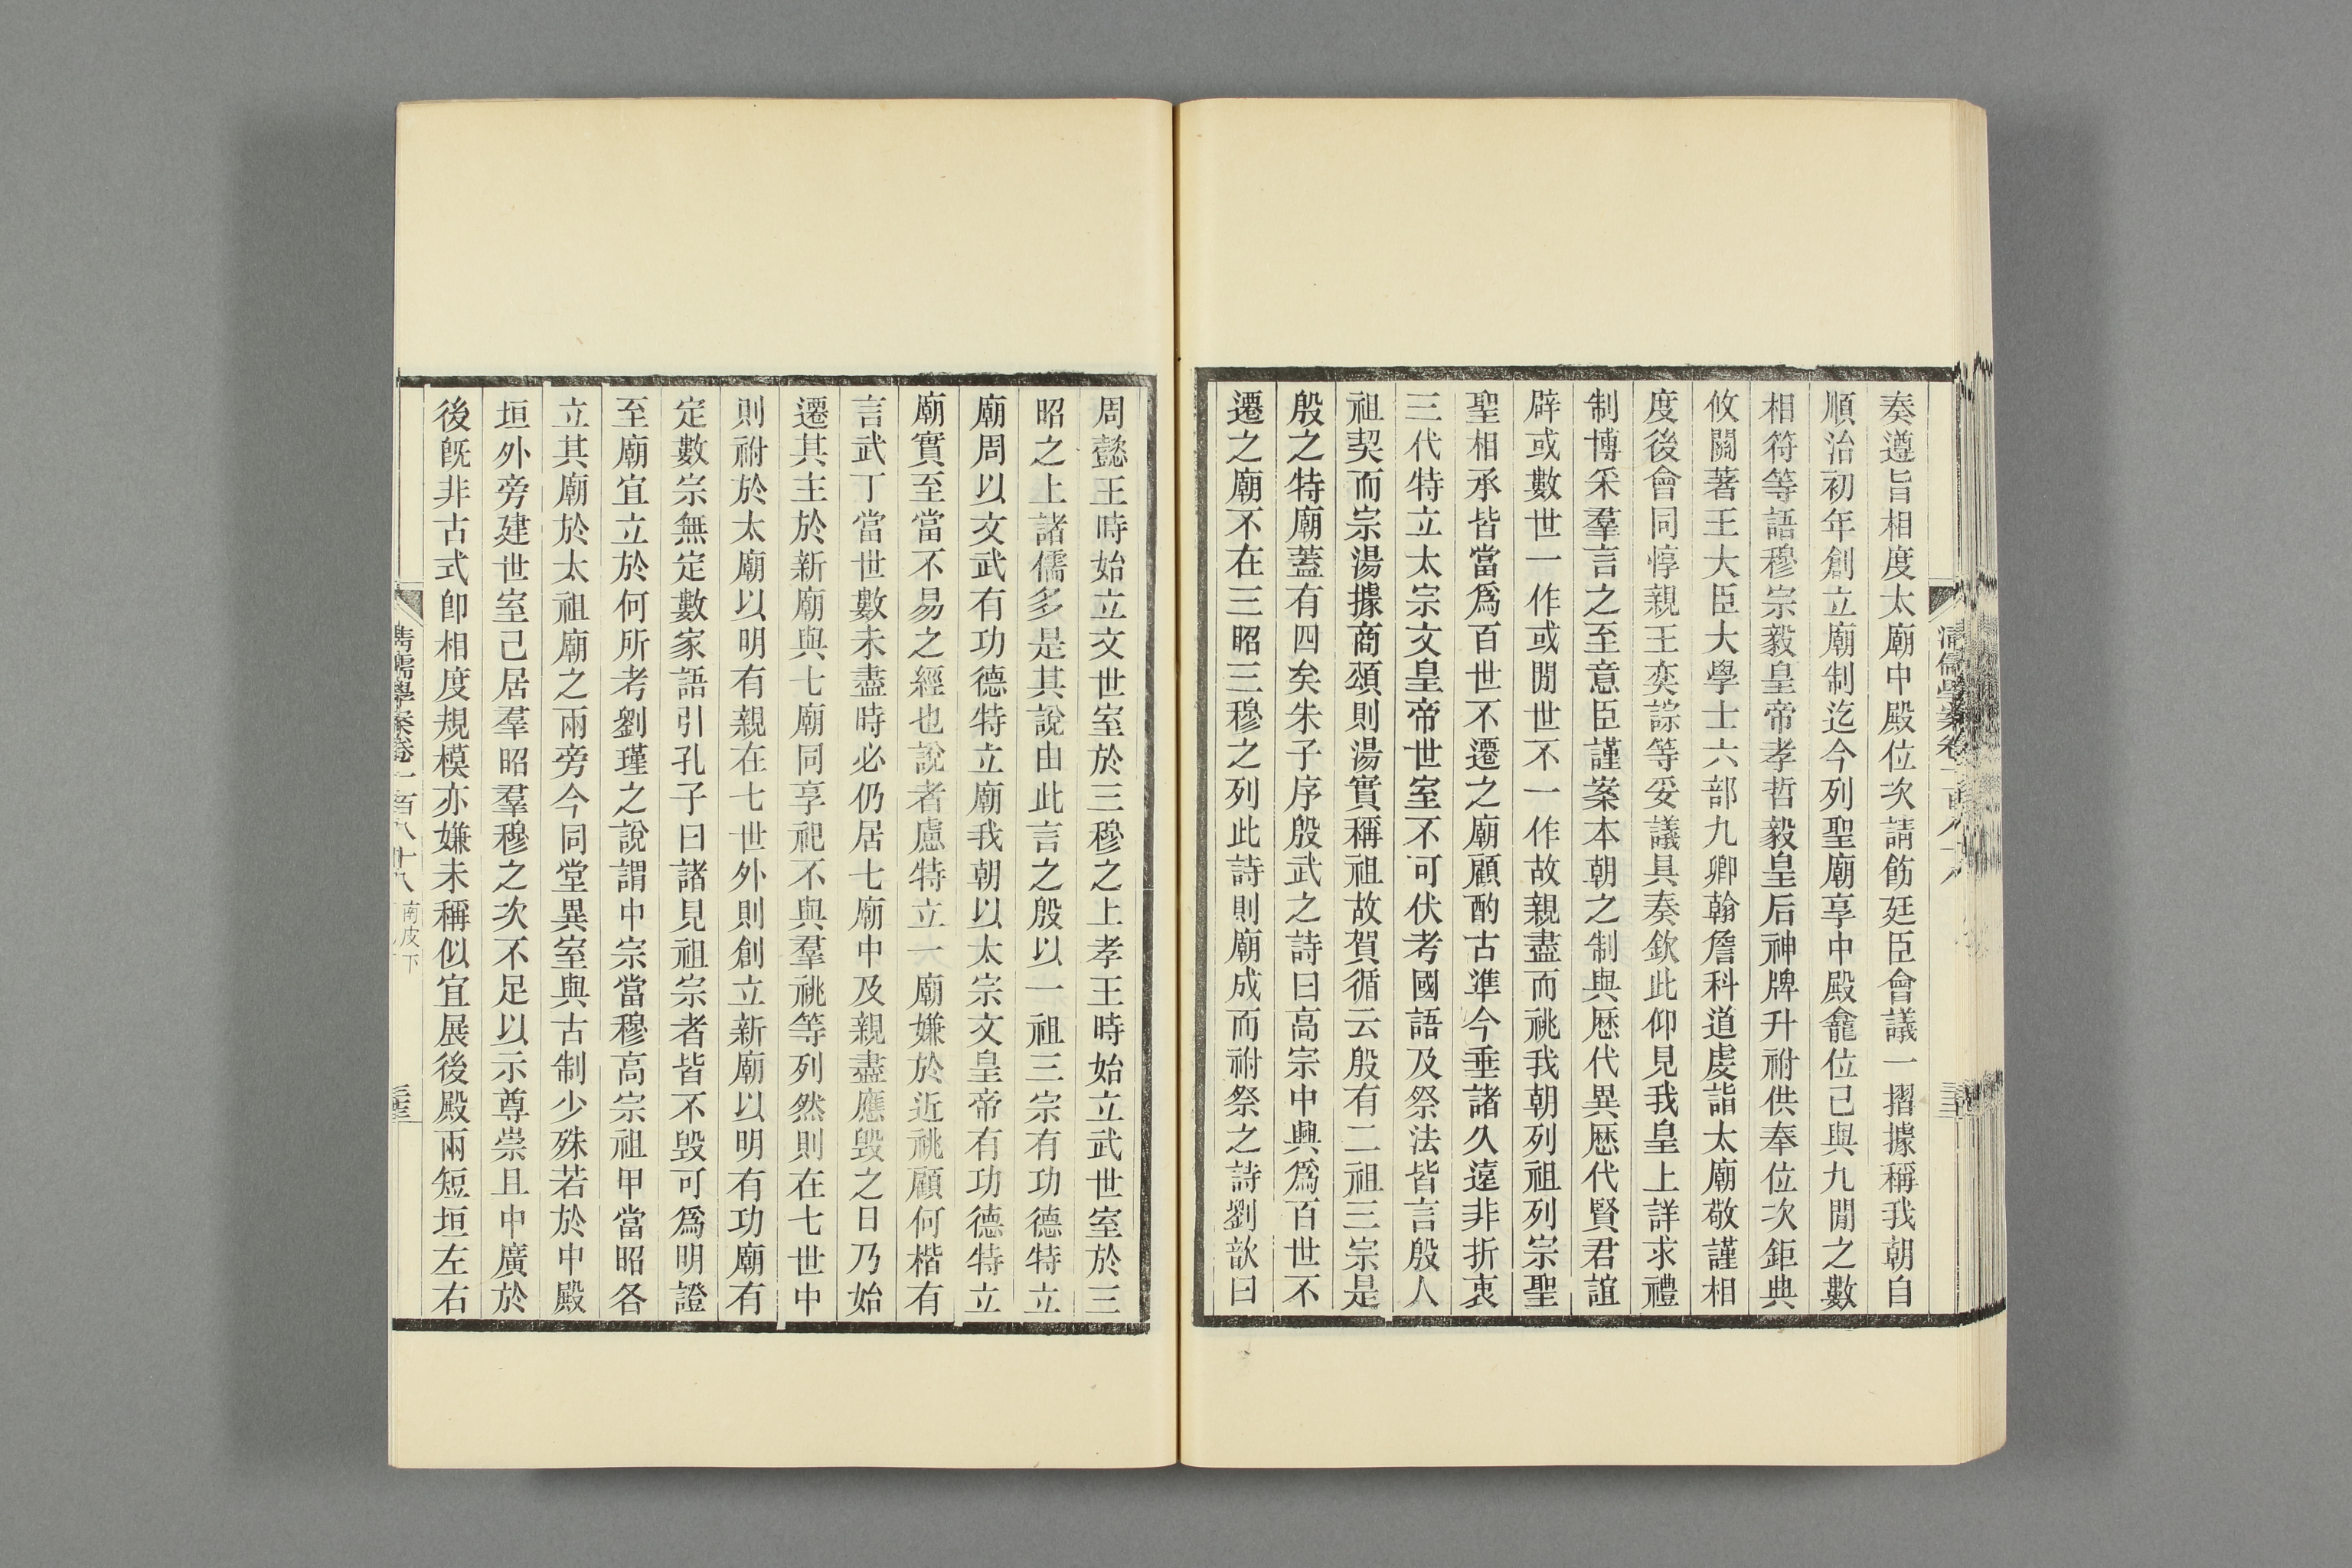 奏遵旨相度太廟中殿位次請飭廷臣會議一摺據稱我朝自
順治初年創立廟制迄今列聖廟享中殿龕位已與九閒之數
相符等語穆宗毅皇帝孝哲毅皇后神牌升祔供奉位次鉅典
攸關著王大臣大學士六部九卿翰詹科道虔詣太廟敬謹相
度後會同惇親王奕誴等妥議具奏欽此仰見我皇上詳求禮
制博采羣言之至意臣謹案本朝之制與歷代異歷代賢君誼
辟或數世一作或閒世不一作故親盡而祧我朝列祖列宗聖
聖相承皆當爲百世不遷之廟顧酌古準今垂諸久遠非折衷
三代特立太宗文皇帝世室不可伏考國語及祭法皆言殷人
祖契而宗湯據商頌則湯實稱祖故賀循云殷有二祖三宗是
殷之特廟蓋有四矣朱子序殷武之詩曰高宗中興爲百世不
遷之廟不在三昭三穆之列此詩則廟成而祔祭之詩劉歆曰
周懿王時始立文世室於三穆之上孝王時始立武世室於三
昭之上諸儒多是其說由此言之殷以一祖三宗有功德特立
廟周以文武有功德特立廟我朝以太宗文皇帝有功德特立
廟實至當不易之經也說者慮特立一廟嫌於近祧顧何楷有
言武丁當世數未盡時必仍居七廟中及親盡應毀之日乃始
遷其主於新廟與七廟同享祀不與羣祧等列然則在七世中
則祔於太廟以明有親在七世外則創立新廟以明有功廟有
定數宗無定數家語引孔子曰諸見祖宗者皆不毀可爲明證
至廟宜立於何所考劉瑾之說謂中宗當穆高宗祖甲當昭各
立其廟於太祖廟之兩旁今同堂異室與古制少殊若於中殿
垣外旁建世室已居羣昭羣穆之次不足以示尊崇且中廣於
後旣非古式卽相度規模亦嫌未稱似宜展後殿兩短垣左右
清儒學案卷一百八十八 南皮下